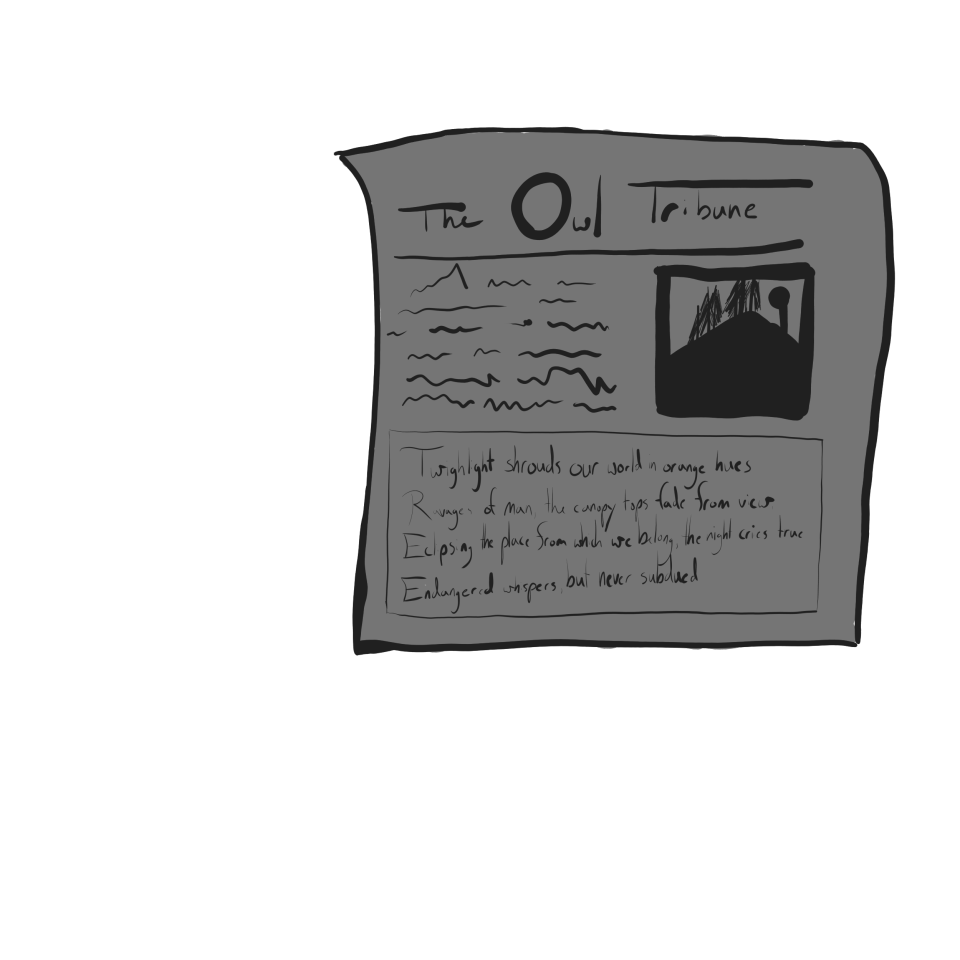 The Owl Tribune
Twighlight shrouds our world in orange hues
Ravages of man, the canopy tops fade from view
Eclipsing the place from which we belong, the night cries true
Endangered whispers, but never subdued